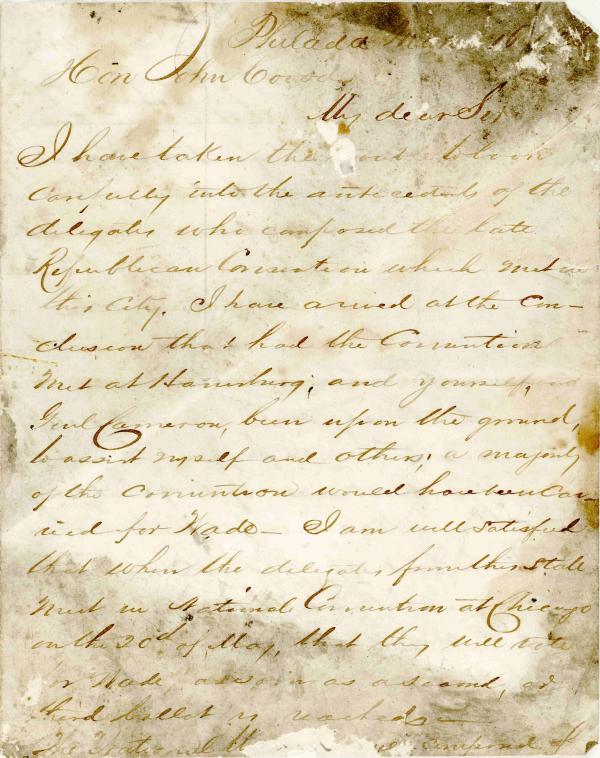 Philada Mar 16
Hon John Covode
My dear Sir
I have taken the trouble to look
carefully into the antecedents of the
delegates who composed the late
Republican Convention which met in
this City. I have arived at the con-
clusion that had the Convention
met at Harrisburg, and yourself, and
Genl Cameron, been upon the ground,
to assist myself and others, a majority
of the convention would have been car-
ried for Wade — I am well satisfied
that when the delegates from this state
meet in National Convention at Chicago
on the 20th of May, that they will vote
for Wade as soon as a second, or
third ballot is reached —
The National composed of